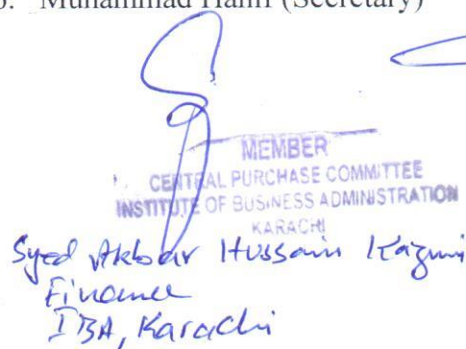 Muhammad Hanif (Secretary)
MEMBER
CENTRAL PURCHASE COMMITTEE
INSTITUTE OF BUSINESS ADMINISTRATION
KARACHI
Syed Akbar Hussain Kazmi
Finance
IBA, Karachi